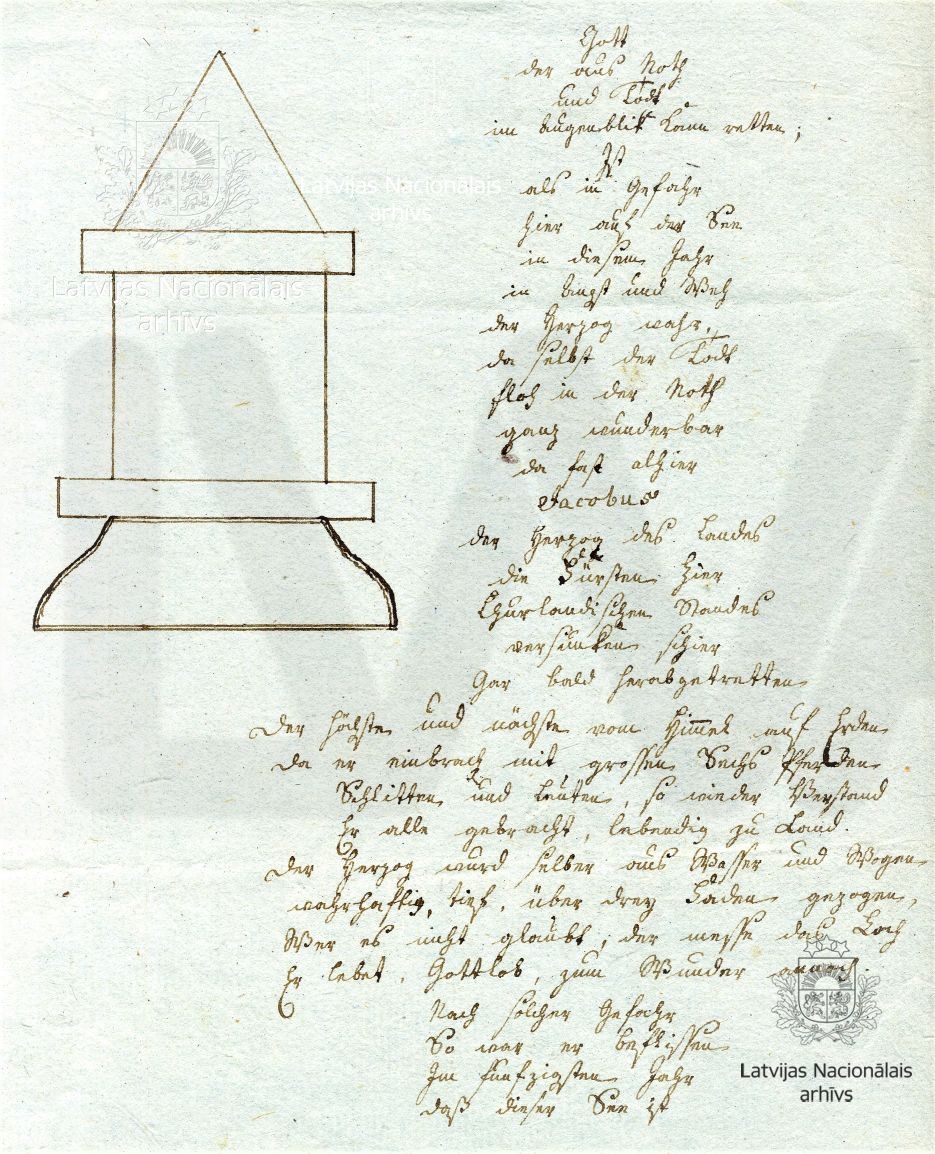 Gott
der aus Noth
und Todt
im Augenblik kann retten;
Ist
als in Gefahr
hier auf der See
in diesem Jahr
in Angst und Weh
der Herzog wahr,
da selbst der Todt
floh in der Noth
ganz wunderbar
da fast alhier
Jacobus
der Herzog des Landes
die Fürsten Zier
Churlandischen Standes
versunken schier
Gar bald herabgetretten
Der höchste und nächste vom Himmel auf Erden
Da er einbrach mit grossen Sechs Pferden
Schlitten und Leuten, so wieder Verstand
Er alle gebracht, lebendig zu Land.
Der Herzog wurd selber aus Wasser und Wogen
wahrhaftig, tief, über drey Faden gezogen,
Wer es nicht glaubt, der messe das Loch
Er lebet, Gottlob, zum Wunder annoch.
Nach solcher Gefahr
So war er beflissen
Im funfzigsten Jahr
daß dieser See ist
Latvijas Nacionālais
arhīvs
Latvijas Nacionālais
arhīvs
Latvijas Nacionālais
arhīvs